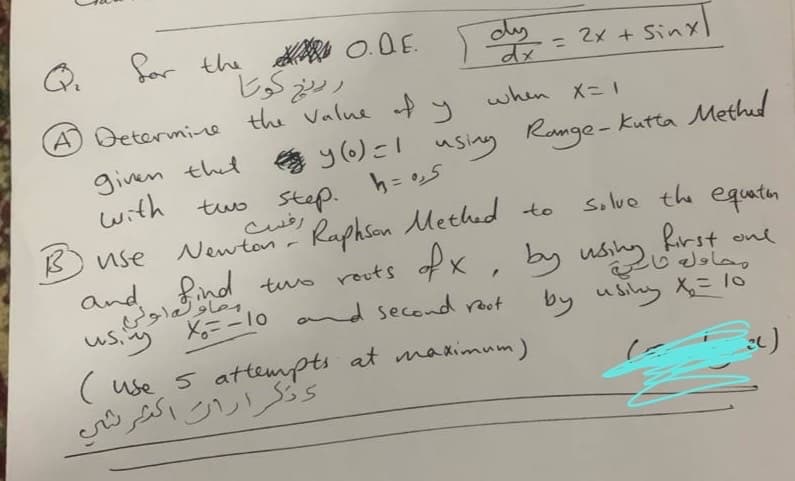 Q. for the O.D.E. dy/dx = 2x + Sinx
رينج كوتا
(A) Determine the value of y when x=1
given that y(0)=1 using Range-Kutta Method
with two step. h=0,5
(B) use Newton - Raphson Method to solve the equation
and find two roots of x, by using first one
محاولة اولى
using X₀=-10 and second root by using X₀=10
(use 5 attempts at maximum)